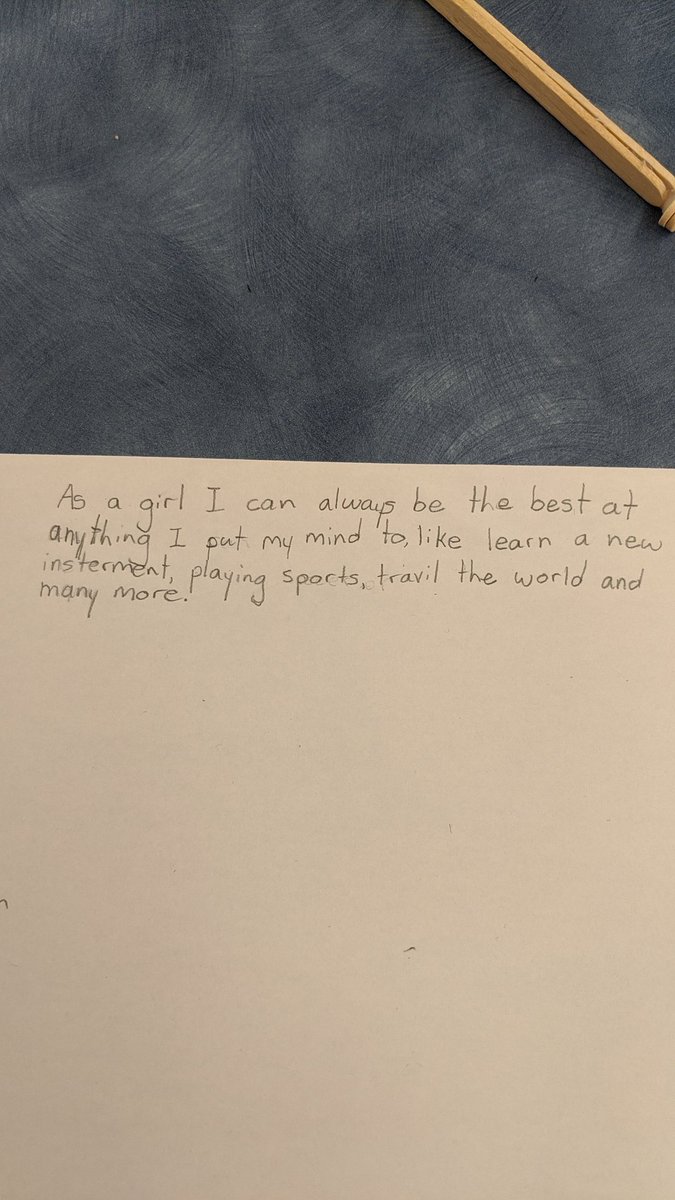 As a girl I can always be the best at
anything I put my mind to, like learn a new
insterment, playing sports, travil the world and
many more.